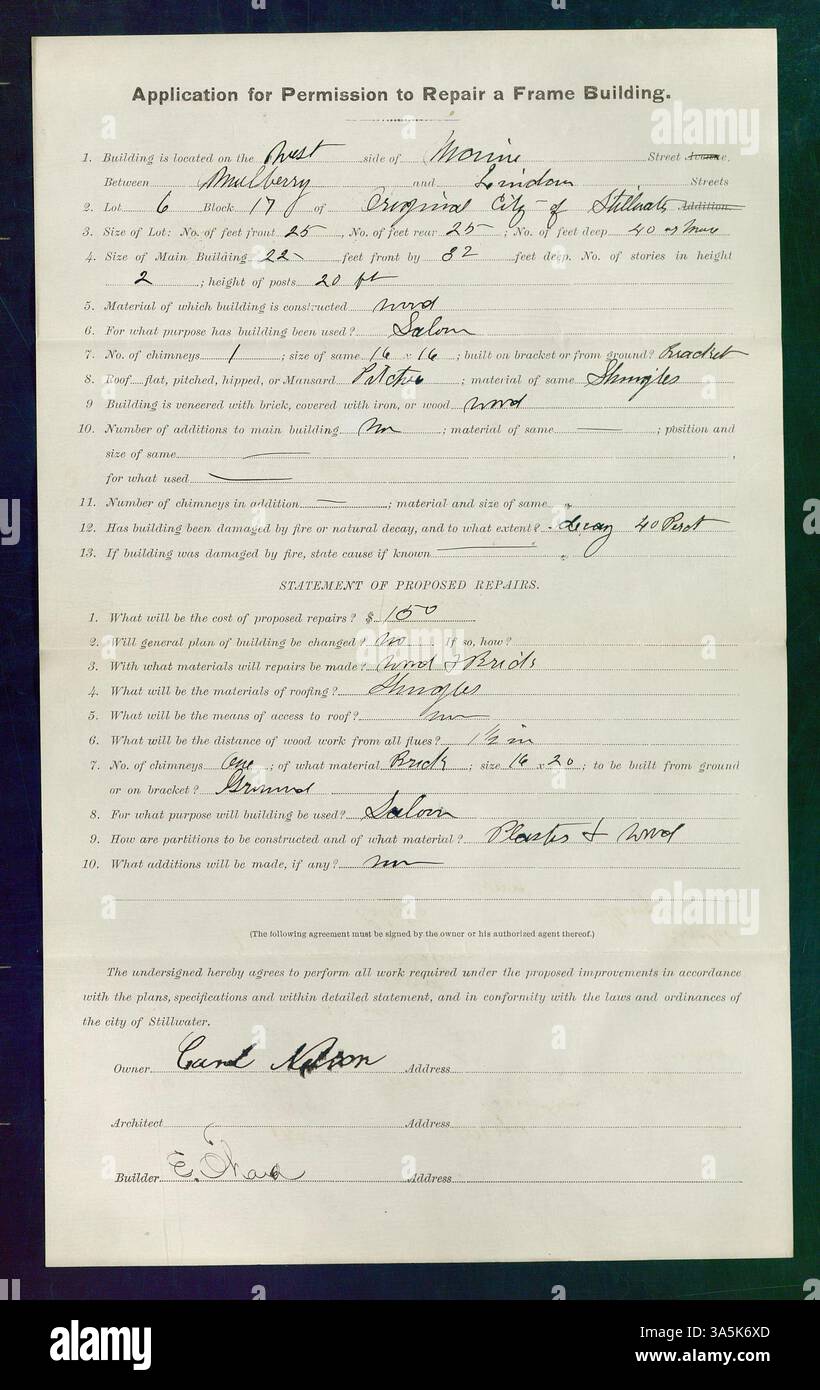 Application for Permission to Repair a Frame Building.
1. Building is located on the West side of Street Avenue.
Between Mulberry and Linden Streets
2. Lot 6 Block 17 of Original City of Addition.
3. Size of Lot: No. of feet front 25, No. of feet rear 25; No. of feet deep 40 or more
4. Size of Main Building 22 feet front by 32 feet deep. No. of stories in height
2; height of posts 20 ft
5. Material of which building is constructed wood
6. For what purpose has building been used? Saloon
7. No. of chimneys 1; size of same 16 x 16; built on bracket or from ground? Bracket
8. Roof flat, pitched, hipped, or Mansard; material of same Shingles
9 Building is veneered with brick, covered with iron, or wood wood
10. Number of additions to main building; material of same; position and
size of same,
for what used
11. Number of chimneys in addition; material and size of same
12. Has building been damaged by fire or natural decay, and to what extent? decay 40
13. If building was damaged by fire, state cause if known
STATEMENT OF PROPOSED REPAIRS.
1. What will be the cost of proposed repairs? $ 150
2. Will general plan of building be changed? no If so, how?
3. With what materials will repairs be made? wood & Brick
4. What will be the materials of roofing? Shingles
5. What will be the means of access to roof?
6. What will be the distance of wood work from all flues? 1 1/2 in
7. No. of chimneys One; of what material Brick; size 16 x 20; to be built from ground
or on bracket? Ground
8. For what purpose will building be used? Saloon
9. How are partitions to be constructed and of what material? Plaster & Wood
10. What additions will be made, if any?
(The following agreement must be signed by the owner or his authorized agent thereof.)
The undersigned hereby agrees to perform all work required under the proposed improvements in accordance
with the plans, specifications and within detailed statement, and in conformity with the laws and ordinances of
the city of Stillwater.
Owner Nelson Address
Architect Address
Builder E. Address
alamy
Image ID: 3A5K6XD
www.alamy.com